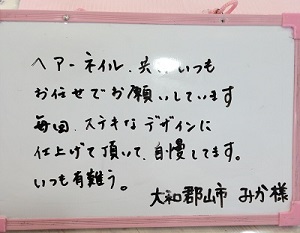 ヘアーネイル、共、いつも
お任せでお願いしています
毎回、ステキなデザインに
仕上げて頂いて、自慢してます。
いつも有難う。
大和郡山市 みか様